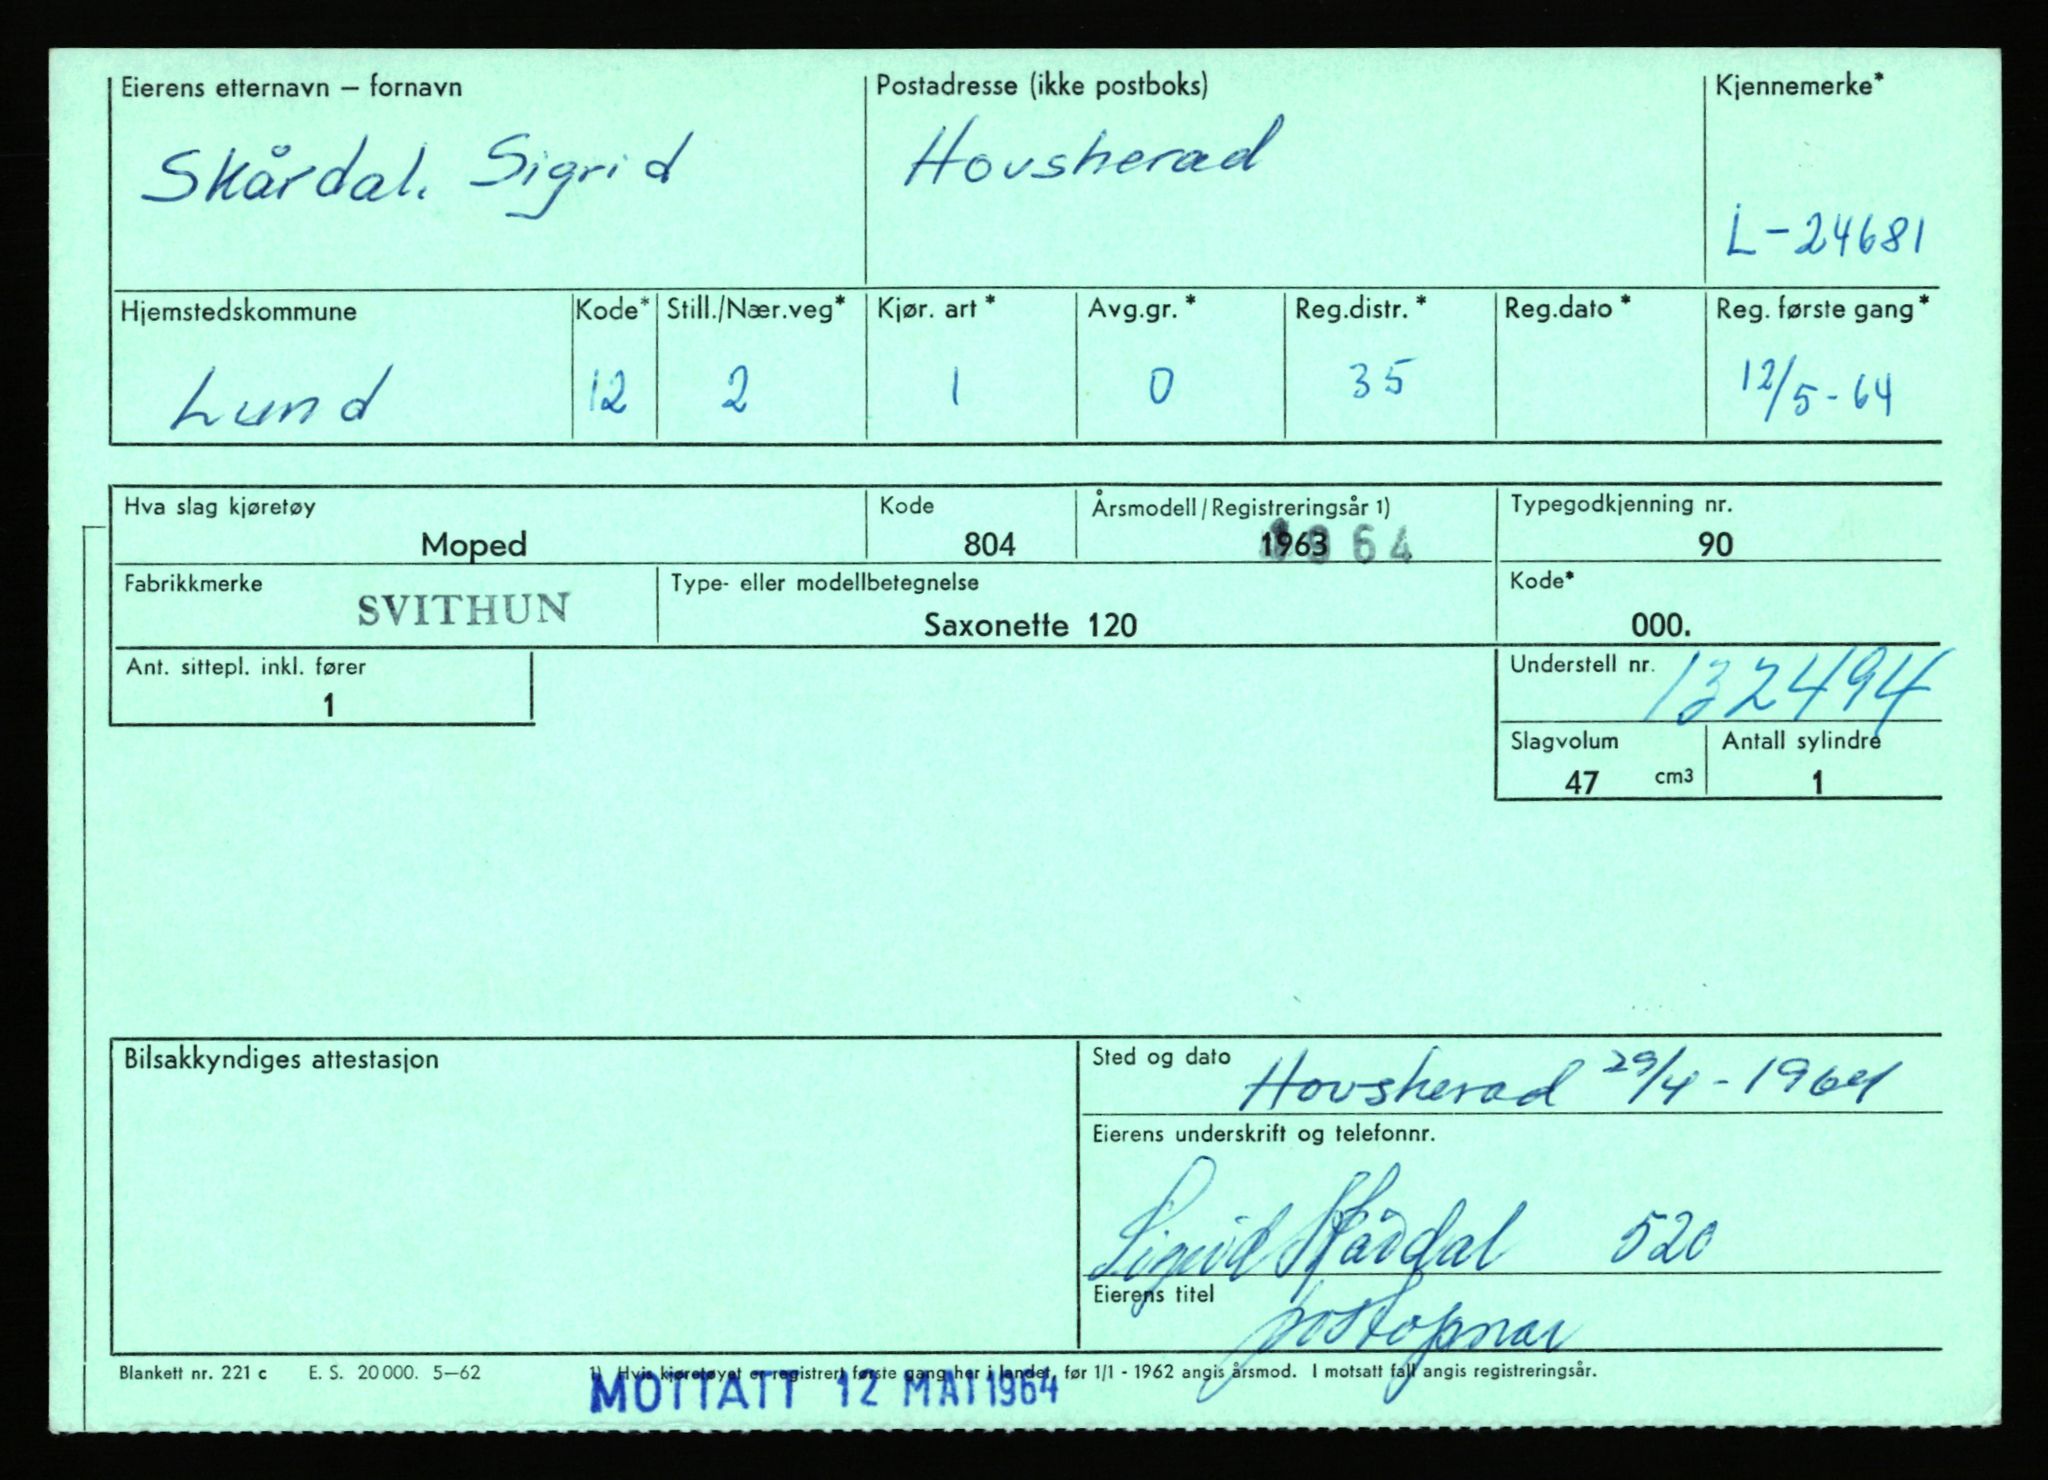 Eierens etternavn — fornavn
Postadresse (ikke postboks)
Kjennemerke*
Skårdal. Sigrid
Hovsherad
L-24681
Hjemstedskommune
Kode*
Still./Nær.veg*
Kjør. art*
Avg.gr.*
Reg.distr.*
Reg.dato*
Reg. første gang*
Lund
12
2
1
0
35
12/5-64
Hva slag kjøretøy
Kode
Årsmodell/Registreringsår 1)
Typegodkjenning nr.
Moped
804
1963
64
90
Fabrikkmerke
SVITHUN
Type- eller modellbetegnelse
Saxonette 120
Kode*
000.
Ant. sittepl. inkl. fører
1
Understell nr.
132494
Slagvolum
47 cm3
Antall sylindre
1
Bilsakkyndiges attestasjon
Sted og dato
Hovsherad 29/4-1964
Eierens underskrift og telefonnr.
Sigrid Skårdal 520
Eierens titel
postopnar
Blankett nr. 221 c E. S. 20000. 5—62
1) Hvis kjøretøyet er registrert første gang her i landet, før 1/1 - 1962 angis årsmod. I motsatt fall angis registreringsår.
MOTTATT 12 MAI 1964